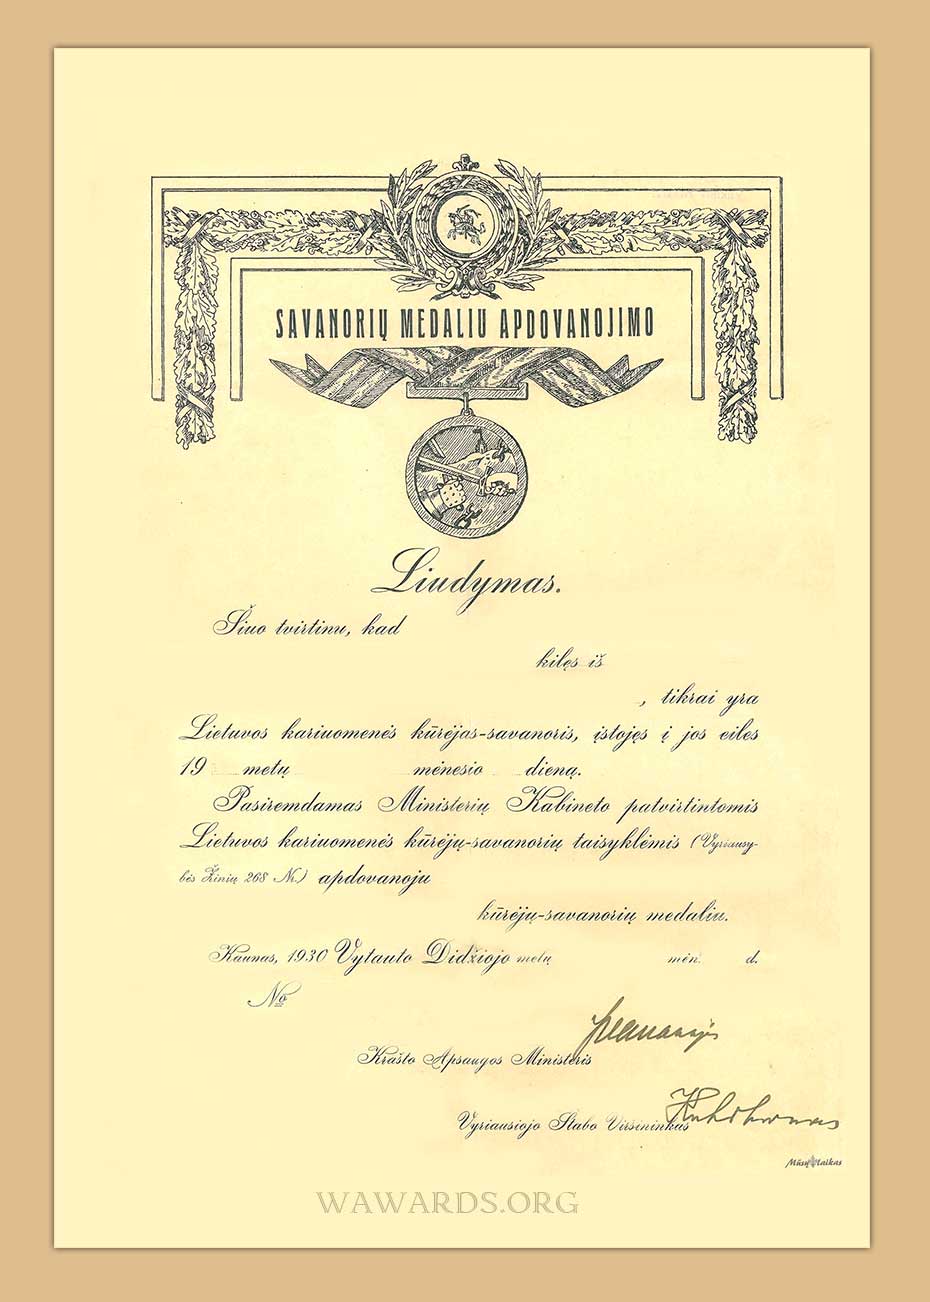 SAVANORIŲ MEDALIU APDOVANOJIMO
Liudymas.
Šiuo tvirtinu, kad
kilęs iš
, tikrai yra
Lietuvos kariuomenės kūrėjas-savanoris, įstojęs į jos eiles
19 metų mėnesio dieną.
Pasiremdamas Ministerių Kabineto patvirtintomis
Lietuvos kariuomenės kūrėjų-savanorių taisyklėmis (Vyriausy-
bės Žinių 268 Nr.) apdovanoju
kūrėjų-savanorių medaliu.
Kaunas, 1930 Vytauto Didžiojo metų mėn. d.
No
Krašto Apsaugos Ministeris
Vyriausiojo Štabo Viršininkas
Mūsų laikas
WAWARDS.ORG